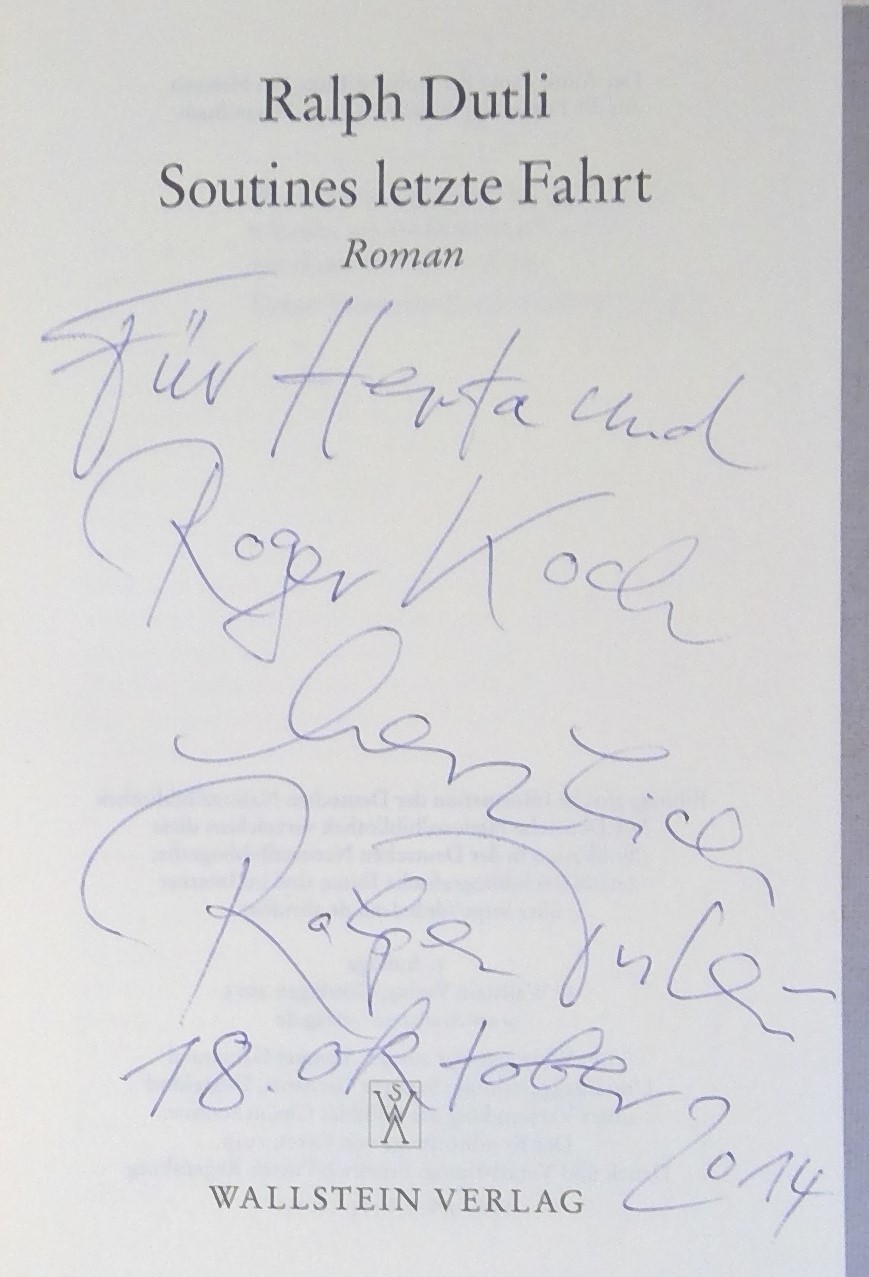 Ralph Dutli
Soutines letzte Fahrt
Roman
Für Herta und
Roger Koch
herzlich
Ralph Dutli
18. Oktober
2014
WALLSTEIN VERLAG